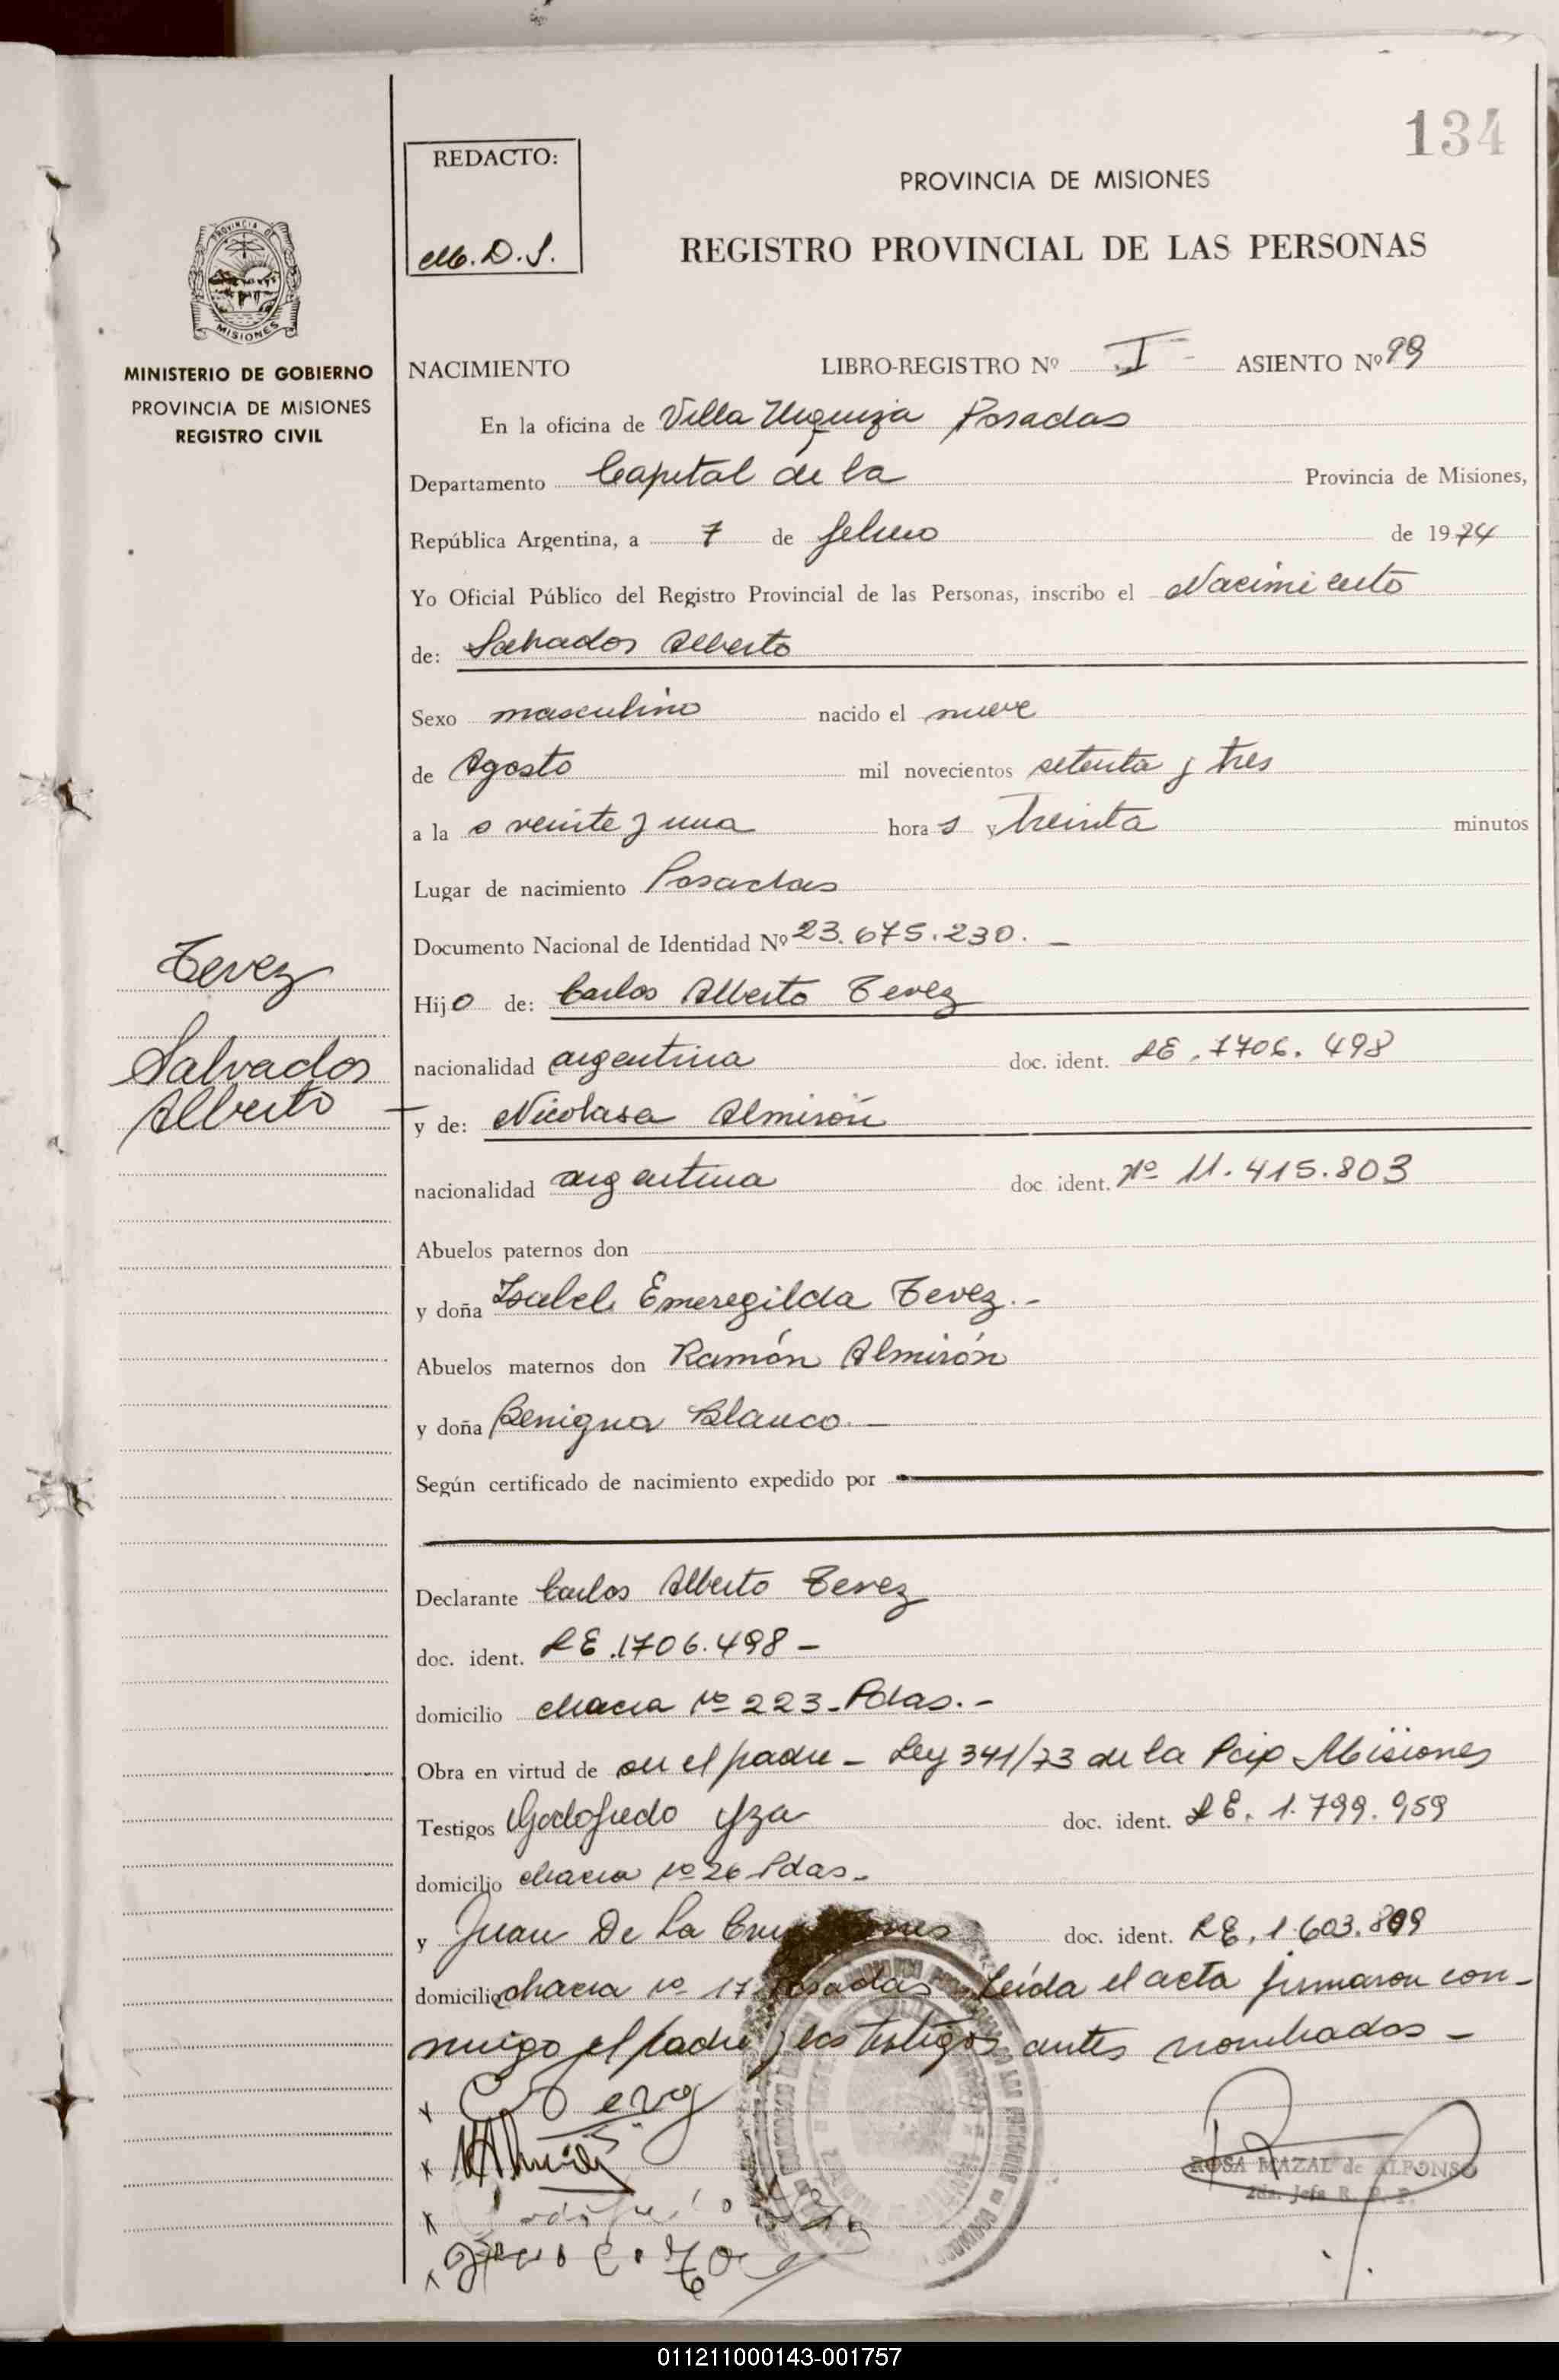 134
REDACTO:
M. D. S.
PROVINCIA DE MISIONES
REGISTRO PROVINCIAL DE LAS PERSONAS
PROVINCIA DE
MISIONES
MINISTERIO DE GOBIERNO
PROVINCIA DE MISIONES
REGISTRO CIVIL
NACIMIENTO LIBRO-REGISTRO Nº I - ASIENTO Nº 99
En la oficina de Villa Urquiza Posadas
Departamento Capital de la Provincia de Misiones,
República Argentina, a 7 de febrero de 1974
Yo Oficial Público del Registro Provincial de las Personas, inscribo el Nacimiento
de: Salvador Alberto
Sexo masculino nacido el nueve
de Agosto mil novecientos setenta y tres
a la s veinte y una hora s y treinta minutos
Lugar de nacimiento Posadas
Documento Nacional de Identidad Nº 23.675.230. -
Tevez
Hijo de: Carlos Alberto Tevez
Salvador
Alberto
nacionalidad argentina doc. ident. LE. 1706.498
y de: Nicolasa Almirón
nacionalidad argentina doc. ident. Nº 11.415.803
Abuelos paternos don
y doña Isabel Emeregilda Tevez.-
Abuelos maternos don Ramón Almirón
y doña Benigna Blanco. -
Según certificado de nacimiento expedido por
Declarante Carlos Alberto Tevez
doc. ident. LE.1706.498 -
domicilio chacra Nº 223-Pdas.-
Obra en virtud de ser el padre - Ley 341/73 de la Pcia Misiones
Testigos Godofredo Yza doc. ident. LE. 1.799.959
domicilio chacra Nº 26 Pdas-
y Juan De La Cruz doc. ident. LE. 1.603.809
domicilio chacra Nº 17 Posadas Leída el acta firmaron con-
migo el padre y los testigos antes nombrados -
ROSA MAZAL de ALFONSO
2da. Jefa R. P. P.
011211000143-001757